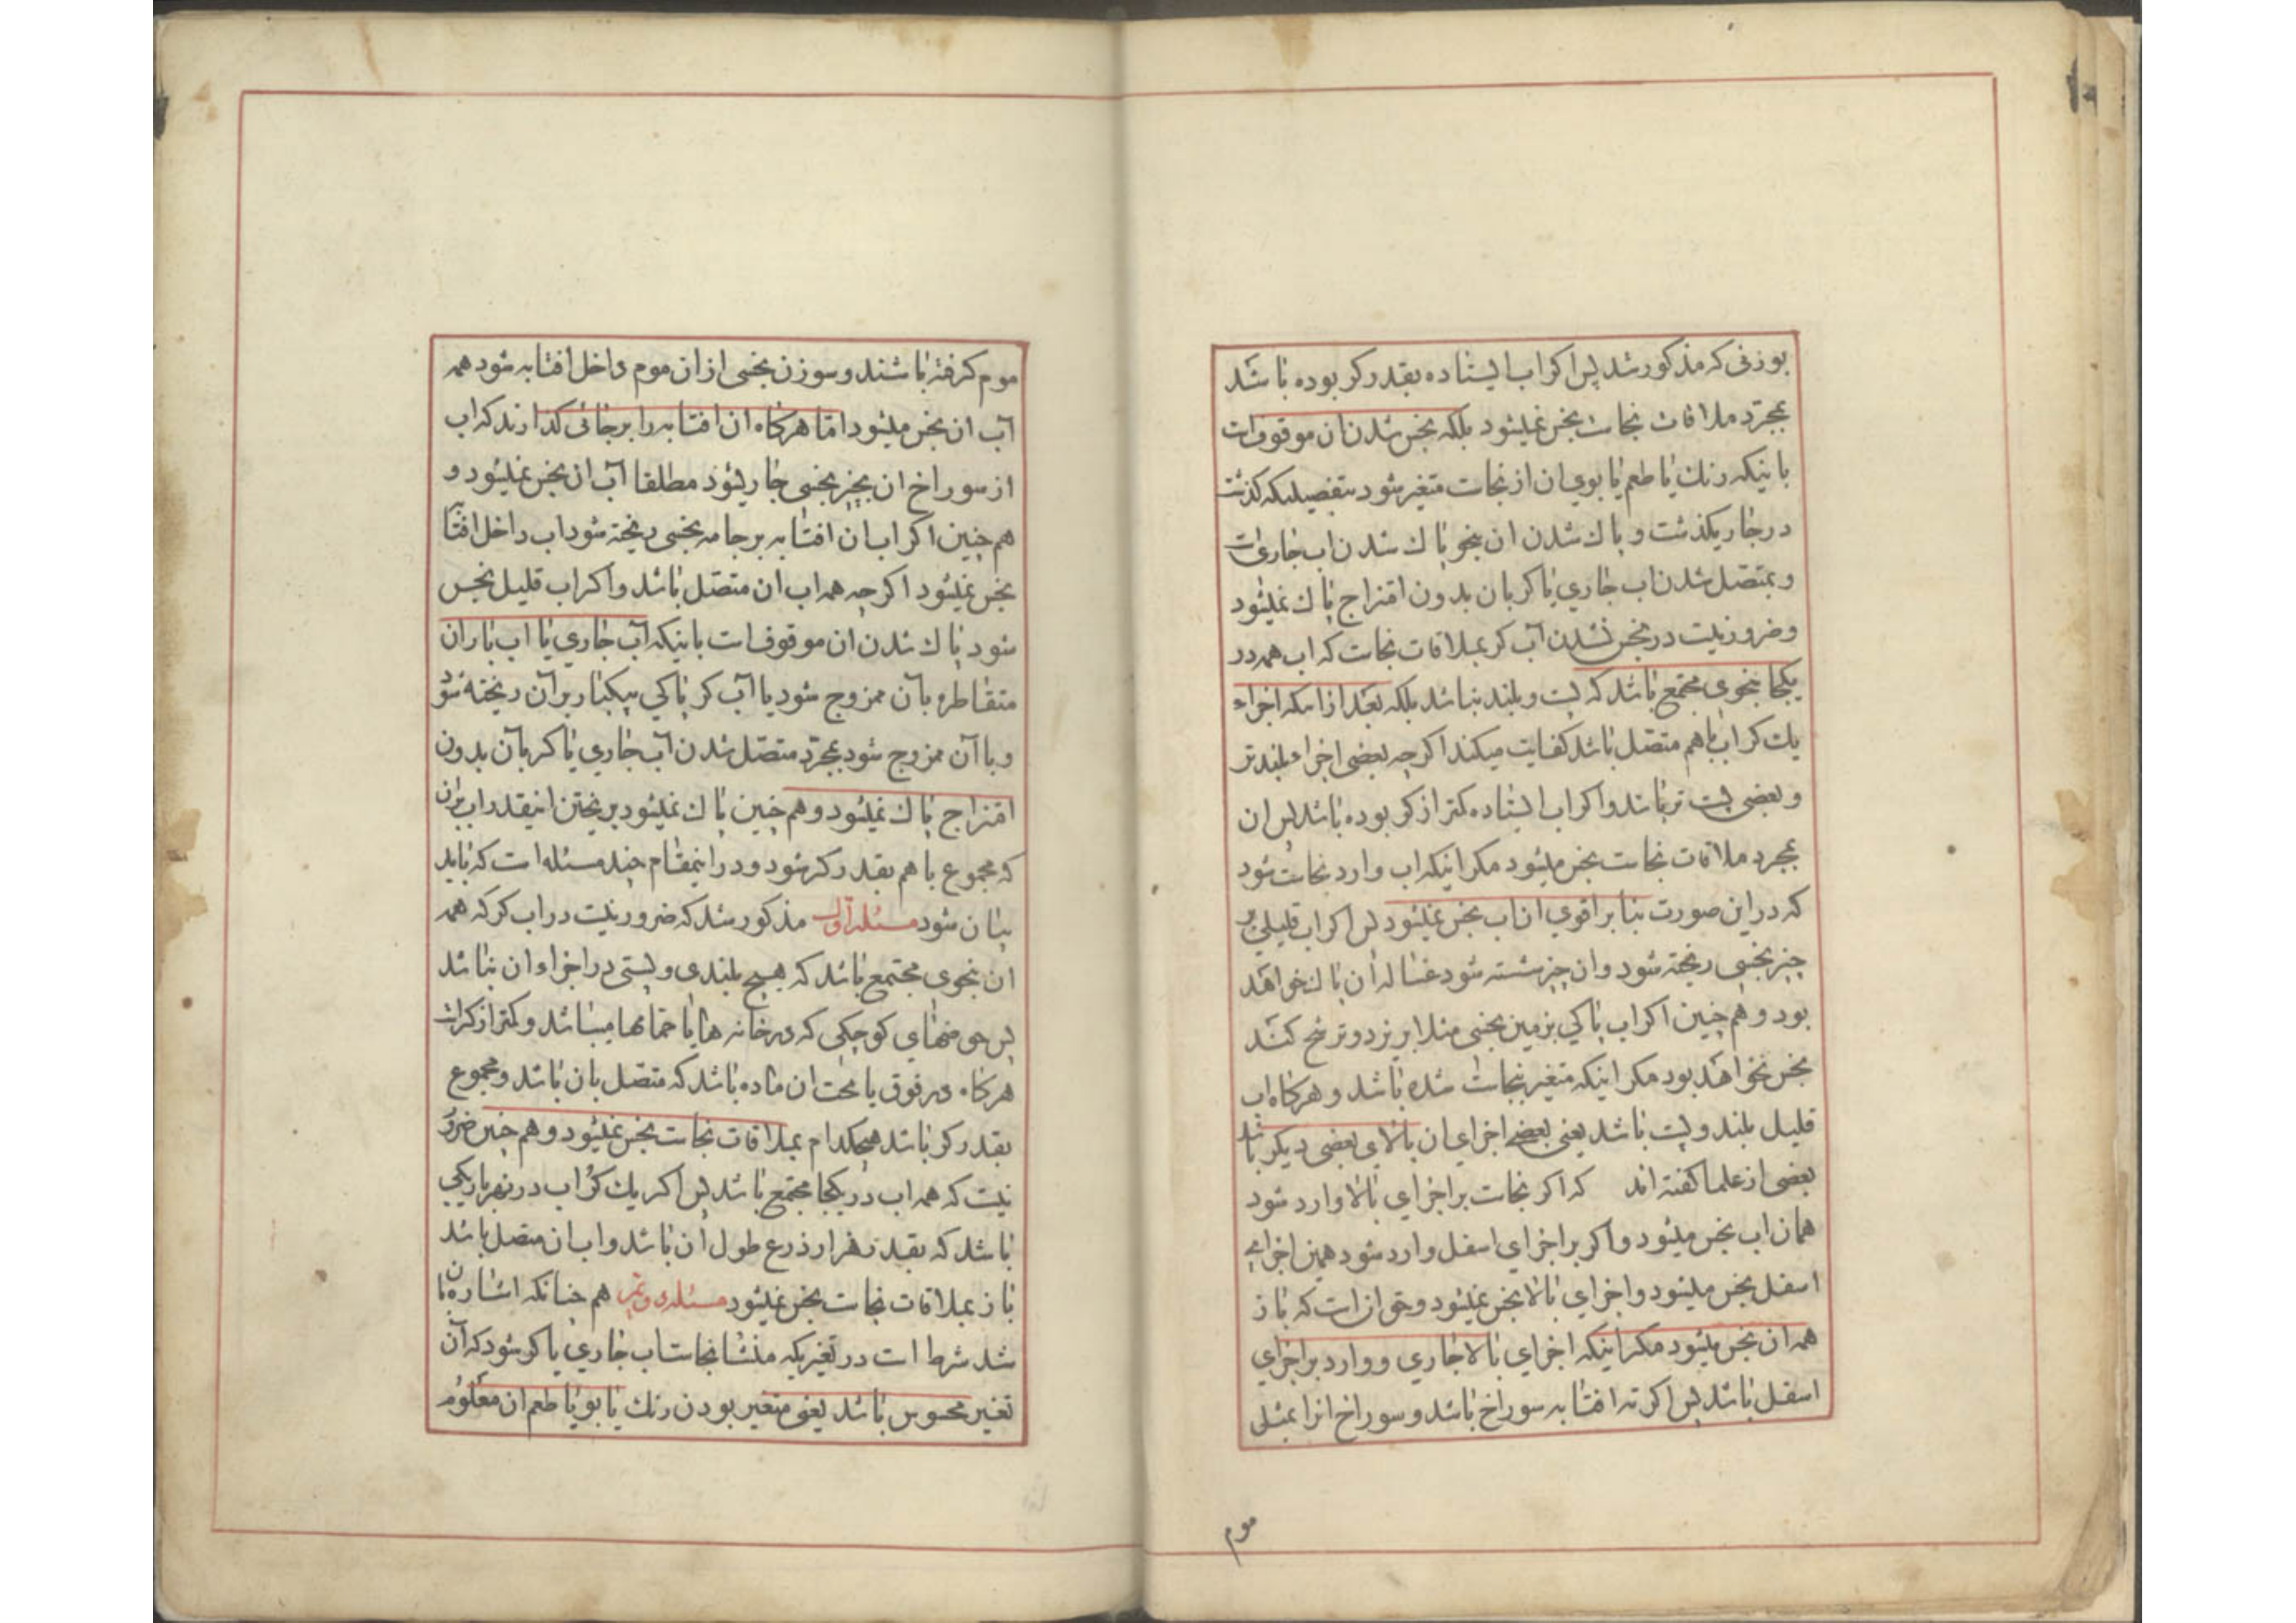 بوزنی که مذکور شد پس اکر اب ایستاده بقدر کر بوده باشد
بمجرّد ملاقات نجاست نجس نمیشود بلکه نجس شدن ان موقوفست
باینکه رنك یا طعم یا بوی ان از نجاست متغیر شود بتفصیلیکه کذشت
در جاری کذشت و پاك شدن ان بنحو پاك شدن اب جاریست
و بمتصّل شدن اب جاری یا کر بان بدون امتزاج پاك نمیشود
و ضرور نیست در نجس نشدن آب کر بملاقات نجاست که اب همه در
یکجا بنحوی مجتمع باشد که پست و بلند نباشد بلکه بعد از اینکه اجزاء
یك کر اب با هم متصّل باشد کفایت میکند اکرچه بعضی اجزاء بلندتر
و بعضی پست تر باشد و اکر اب ایستاده کمتر از کر بوده باشد پس ان
بمجرد ملاقات نجاست نجس میشود مکر اینکه اب وارد نجاست شود
که در این صورت بنا بر اقوی ان اب نجس نمیشود پس اکر اب قلیلی بر
چیز نجسی ریخته شود و ان چیز شسته شود غساله ان پاك خواهد
بود و هم چنین اکر اب پاکی بزمین نجسی مثلا بریزد و ترشح کند
نجس نخواهد بود مکر اینکه متغیر بنجاست شده باشد و هرکاه اب
قلیل بلند و پست باشد یعنی بعضے اجزای ان بالای بعضی دیکر باشد
بعضی از علما کفته اند که اکر نجاست بر اجزای بالا وارد شود
همان اب نجس میشود و اکر بر اجزای اسفل وارد شود همین اجزاے
اسفل نجس میشود و اجزای بالا نجس نمیشود و حق ان است که باز
همه ان نجس میشود مکر اینکه اجزای بالا جاری و وارد بر اجزای
اسفل باشد پس اکر ته افتابه سوراخ باشد و سوراخ انرا بمثل
موم
موم کرفته باشند و سوزن نجسی از ان موم داخل افتابه شود همه
آب ان نجس میشود امّا هرکاه ان افتابه را بر جائی کذارند که اب
از سوراخ ان بچیز نجسی جاری شود مطلقا آب ان نجس نمیشود و
هم چنین اکر اب ان افتابه بر جامه نجسی ریخته شود اب داخل افتابه
نجس نمیشود اکرچه همه اب ان متصّل باشد و اکر اب قلیل نجس
شود پاك شدن ان موقوف است باینکه آب جاری یا اب باران
متقاطره بآن ممزوج شود یا آب کر پاکی بیکبار بر آن ریخته شود
و با آن ممزوج شود بمجرّد متصّل شدن آب جاری یا کر بآن بدون
امتزاج پاك نمیشود و هم چنین پاك نمیشود بریختن اینقدر اب بران
که مجموع با هم بقدر کر شود و در اینمقام چند مسئله است که باید
بیان شود مسئله اول مذکور شد که ضرور نیست در اب کر که همه
ان بنحوی مجتمع باشد که هیچ بلندی و پستی در اجزاء ان نباشد
پس حوضهای کوچکی که در خانه ها یا حمامها میباشد و کمتر از کر است
هرکاه در فوق یا تحت ان ماده باشد که متصل بان باشد و مجموع
بقدر کر باشد هیچکدام بملاقات نجاست نجس نمیشود و هم چنین ضرور
نیست که همه اب در یکجا مجتمع باشد پس اکر یك کُر اب در نهر باریکی
باشد که بقدر هزار ذرع طول ان باشد و اب ان متصل باشد
باز بملاقات نجاست نجس نمیشود مسئله دویم هم چنانکه اشاره بان
شد شرط است در تغیریکه منشا نجاست اب جاری یا کر شود که آن
تغیر محسوس باشد یعنی متغیر بودن رنك یا بو یا طعم ان معلوم